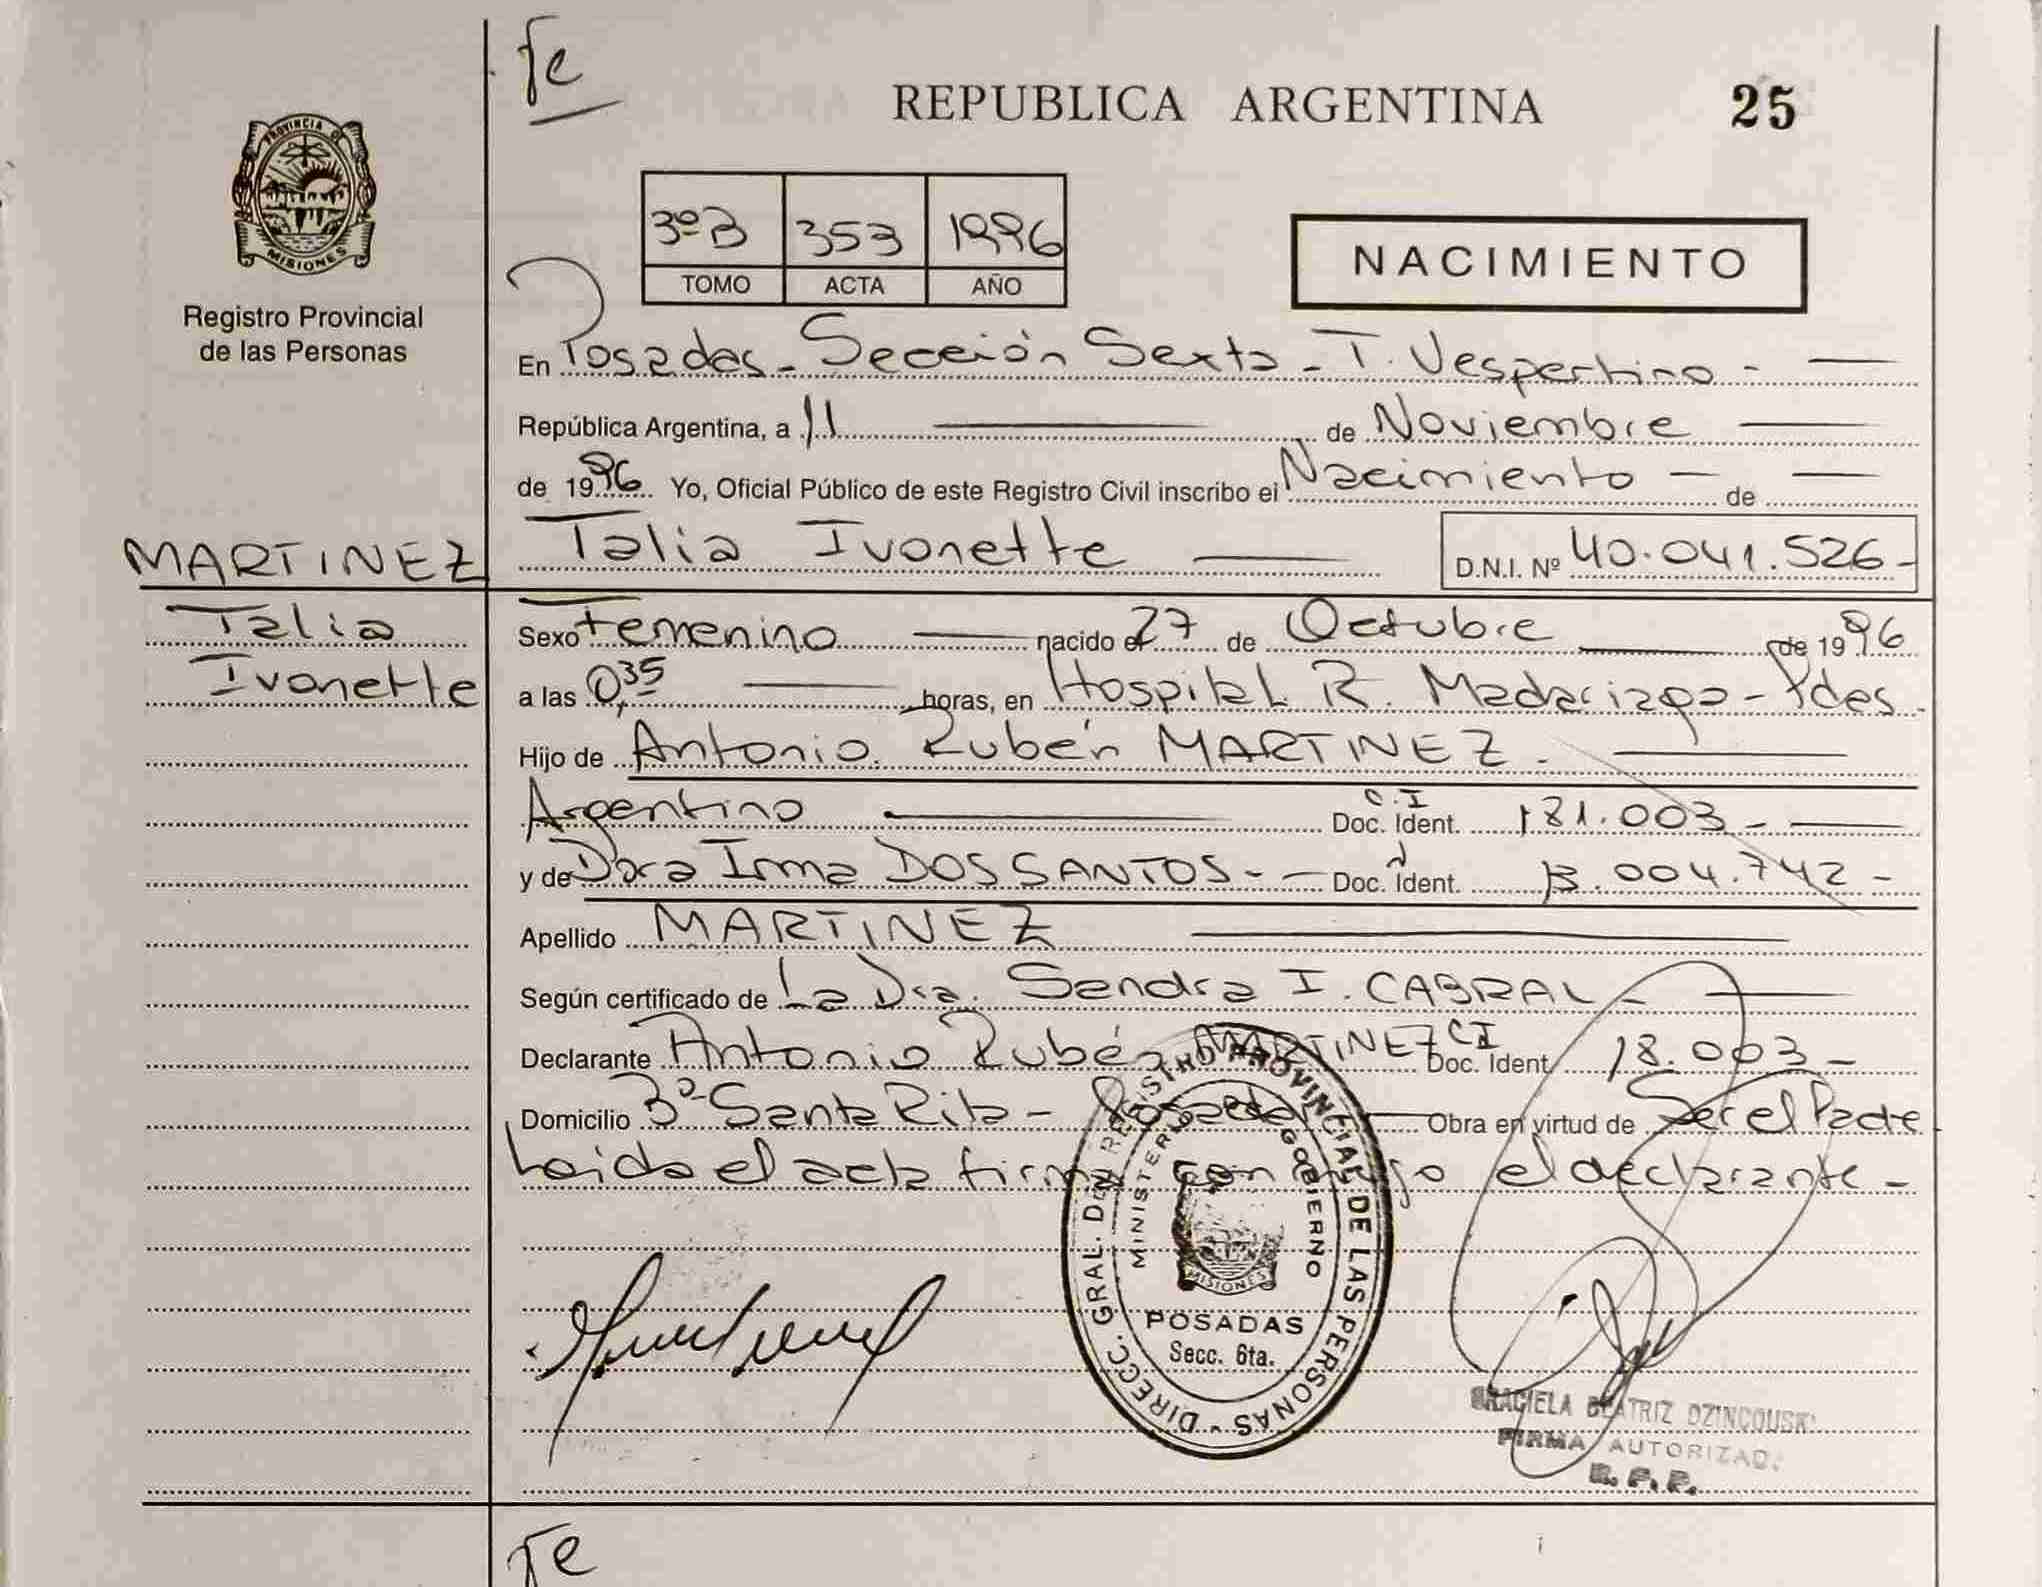 Te
REPUBLICA ARGENTINA
25
PROVINCIA DE
MISIONES
Registro Provincial
de las Personas
3º B 353 1996
TOMO ACTA AÑO
NACIMIENTO
En Posadas - Sección Sexta - T. Vespertino -
República Argentina, a 11 de Noviembre
de 1996 Yo, Oficial Público de este Registro Civil inscribo el Nacimiento - de
MARTINEZ
Talia Ivonette
D.N.I. Nº 40.041.526-
Talia
Ivonette
Sexo Femenino nacido el 27 de Octubre de 1996
a las 0,35 horas, en Hospital R. Madariaga - Pdas.
Hijo de Antonio Rubén MARTINEZ.
Argentino C.I Doc. Ident. 181.003-
y de Dora Irma DOS SANTOS - Doc. Ident. 13.004.742-
Apellido MARTINEZ
Según certificado de La Dra. Sandra I. CABRAL -
Declarante Antonio Rubén MARTINEZ CI Doc. Ident. 18.003-
Domicilio Bº Santa Rita - Posadas Obra en virtud de Ser el Padre
Leida el acta firma con migo el declarante -
DIRECC. GRAL. DEL REGISTRO PROVINCIAL DE LAS PERSONAS -
MINISTERIO GOBIERNO
MISIONES
POSADAS
Secc. 6ta.
GRACIELA BEATRIZ DZINCOUSKI
FIRMA AUTORIZADA
R. P. P.
Te